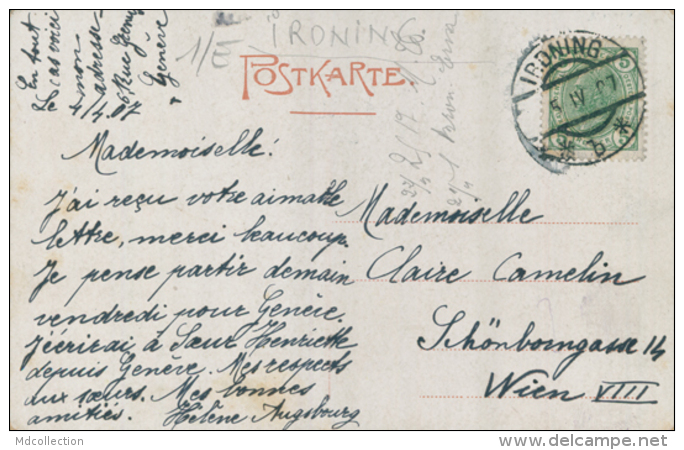 En tout
cas voici
mon
adresse
6 Rue
Genève
Le 4/4.07
1/III
IRONING
POSTKARTE
IRONING
5 IV 07
* b *
Mademoiselle!
J'ai reçu votre aimable
lettre, merci beaucoup.
Je pense partir demain
vendredi pour Genève.
J'écrirai à Sœur Henriette
depuis Genève. Mes respects
aux sœurs. Mes bonnes
amitiés. Hélène Augsbourg
Mademoiselle
Claire Camelin
Schönborngasse 14
Wien VIII
Mdcollection
www.delcampe.net